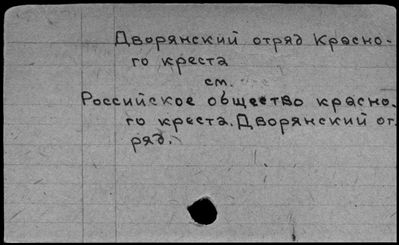 Дворянский отряд Красно-
го креста
см.
Российское общество красно-
го креста. Дворянский от-
ряд.